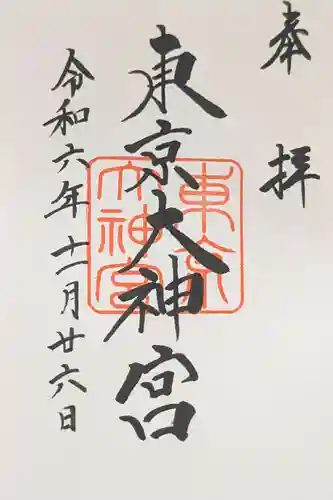 奉拝
東京大神宮
東京
大神宮
令和六年十一月廿六日